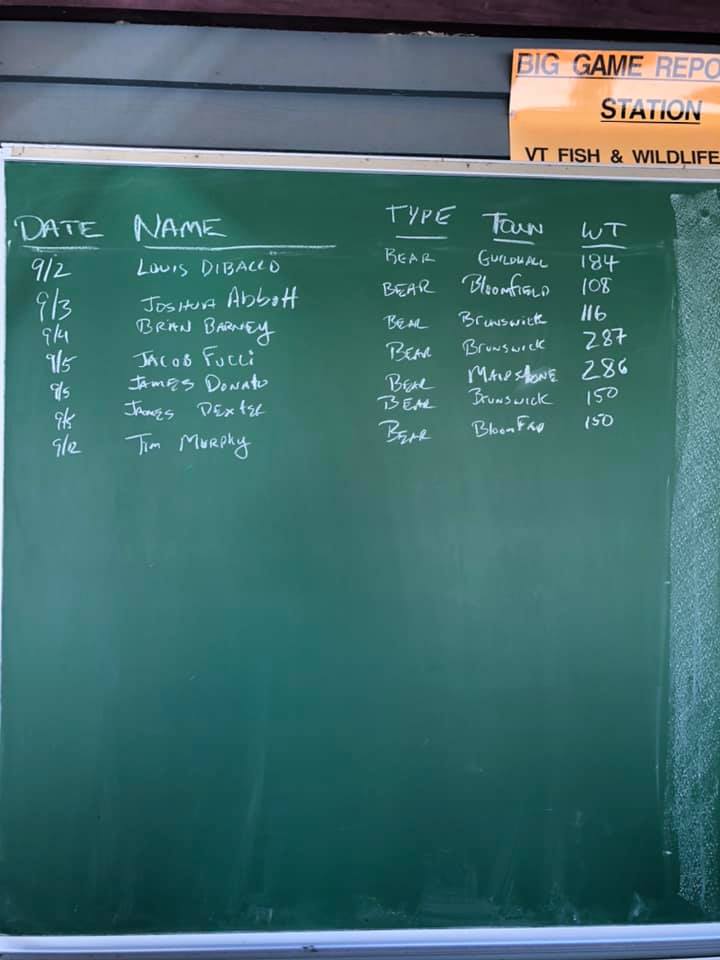 BIG GAME REPO
STATION
VT FISH & WILDLIFE
DATE NAME TYPE TOWN WT
9/2 LOUIS DIBACCO BEAR GUILDHALL 184
9/3 JOSHUA Abbott BEAR BloomfIELD 108
9/4 BRIAN BARNEY BEAR BRUNSWICK 116
9/5 JACOB FUCCI BEAR BRUNSWICK 287
9/5 JAMES DONATO BEAR MAIDSTONE 286
9/5 JAMES DEXTER BEAR BRUNSWICK 150
9/12 TIM MURPHY BEAR 150